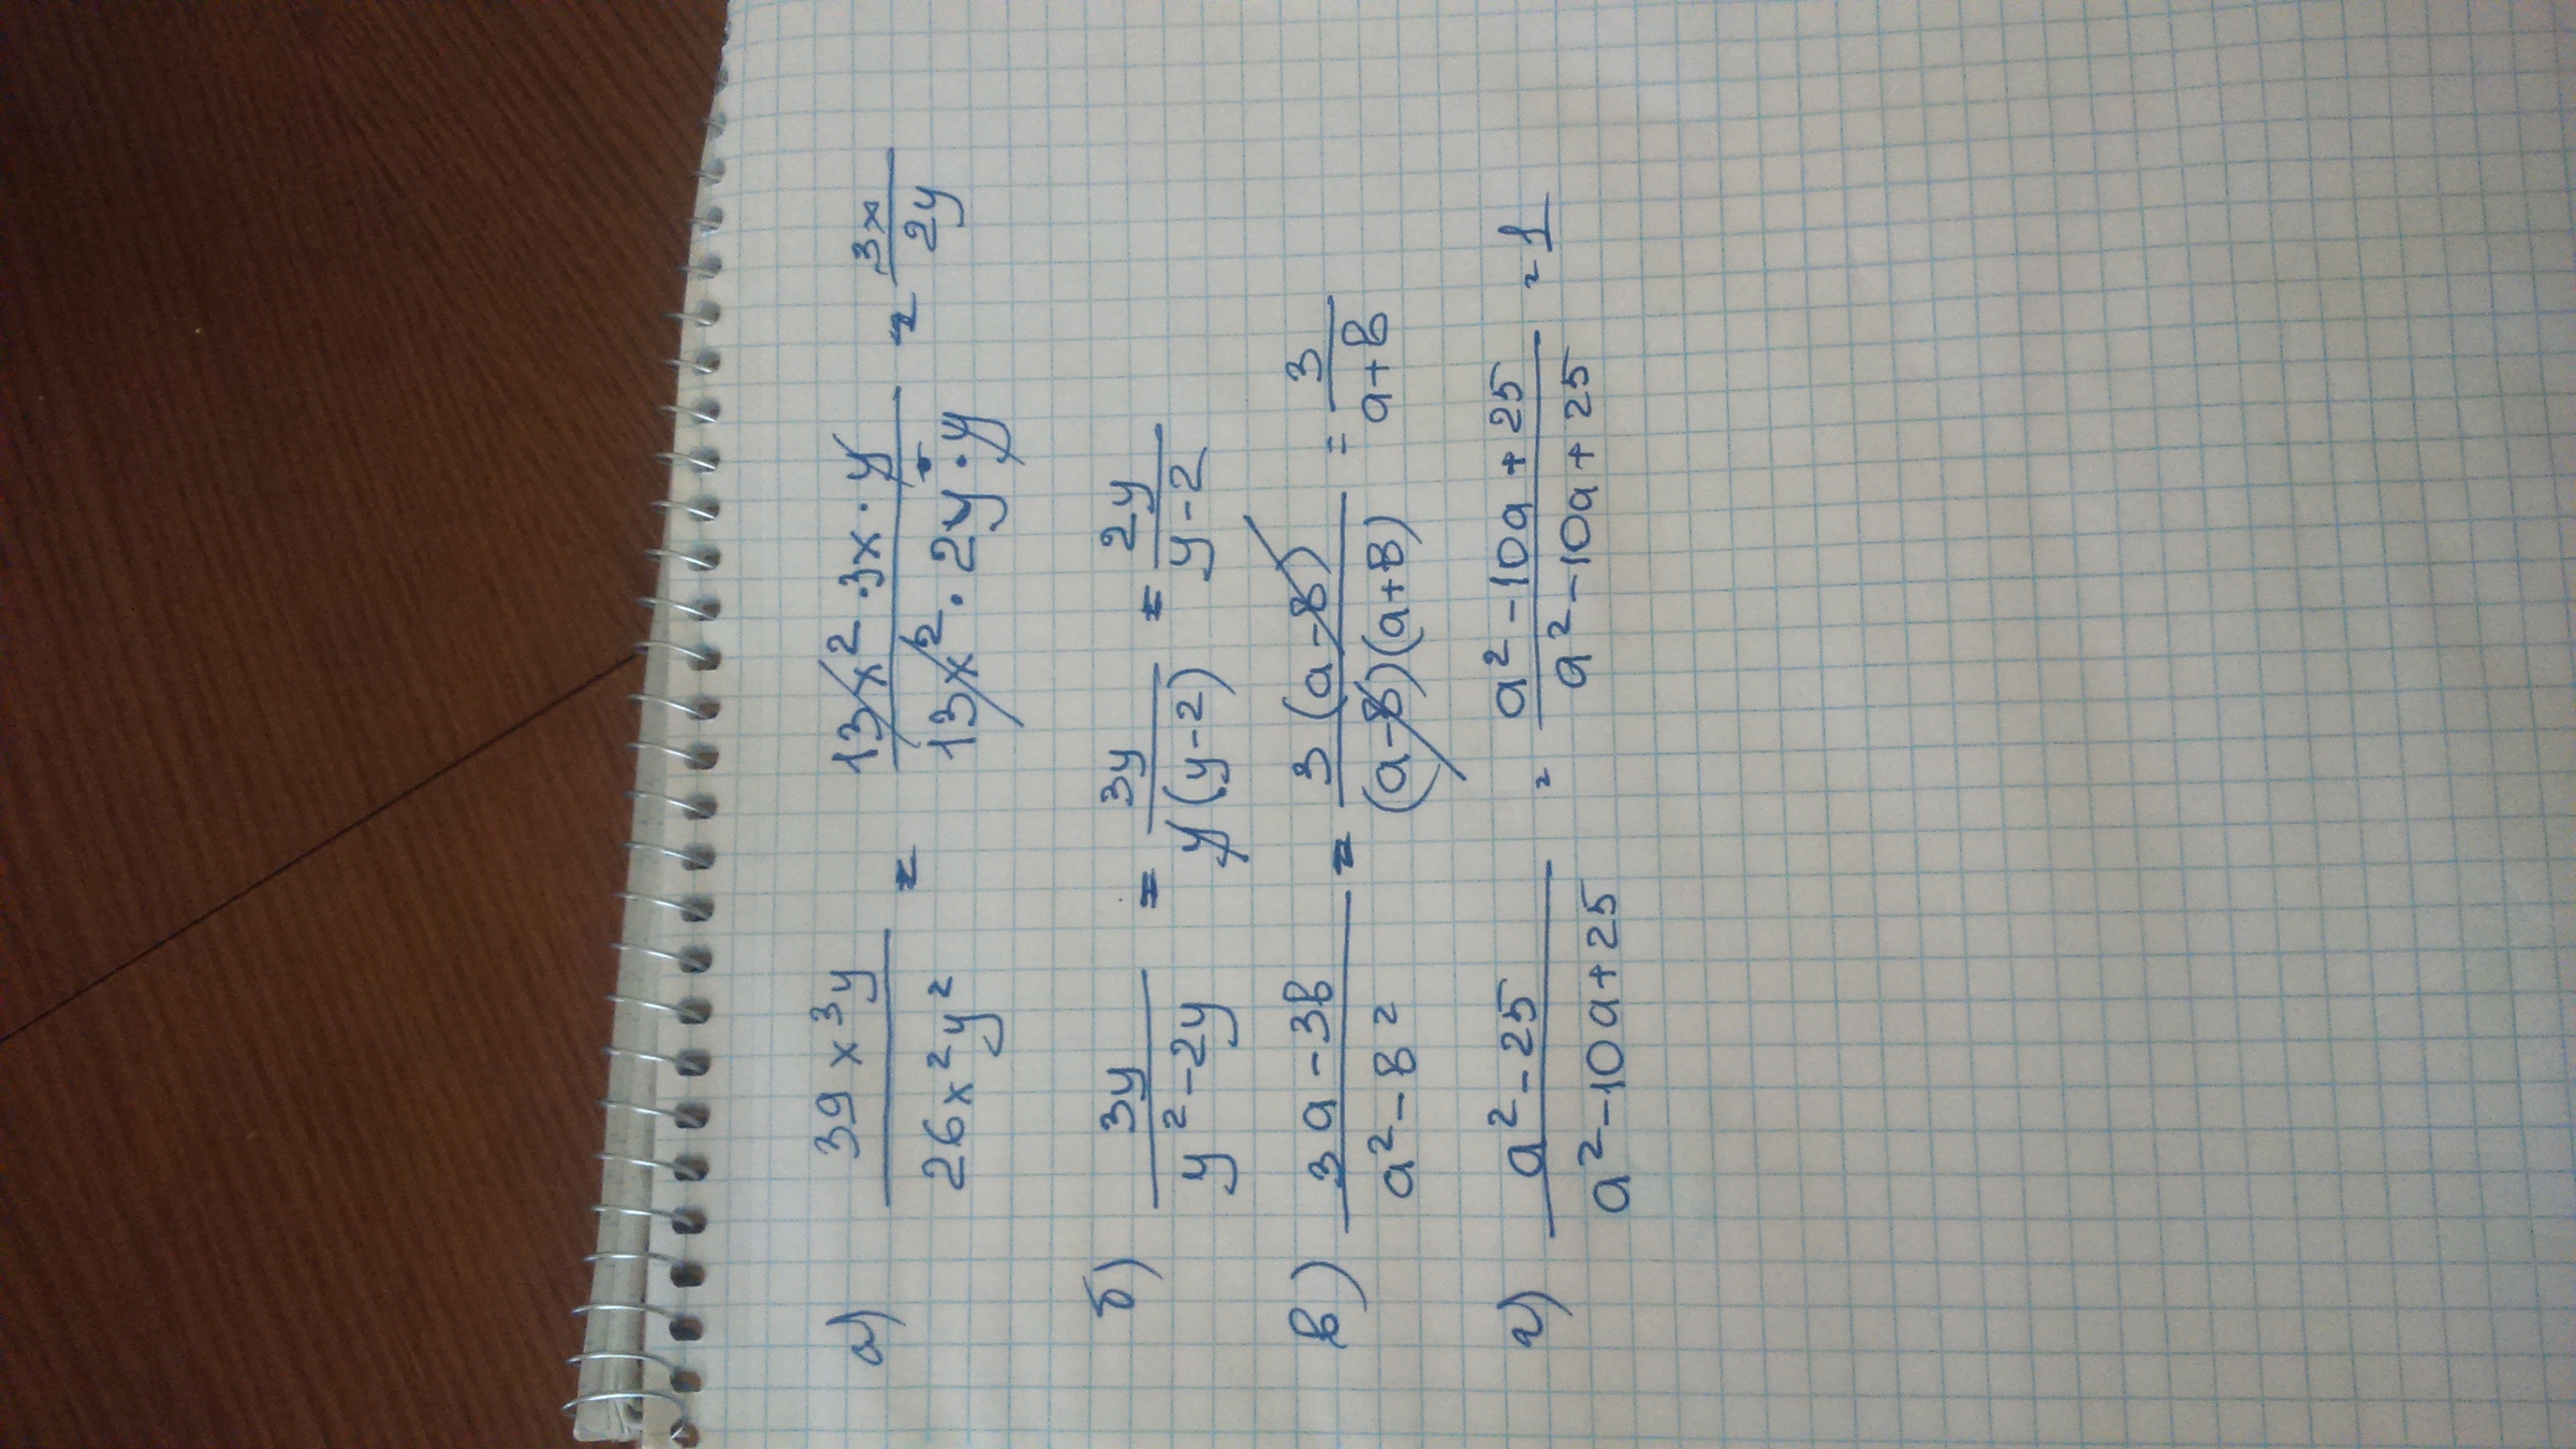 а) 39x³y / 26x²y² = 13x²·3x·y / 13x²·2y·y = 3x / 2y
б) 3y / y²-2y = 3y / y(y-2) = 2y / y-2
в) 3a-3b / a²-b² = 3(a-b) / (a-b)(a+b) = 3 / a+b
г) a²-25 / a²-10a+25 = a²-10a+25 / a²-10a+25 = 1